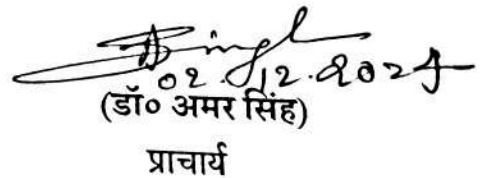 02.12.2024
(डॉ० अमर सिंह)
प्राचार्य